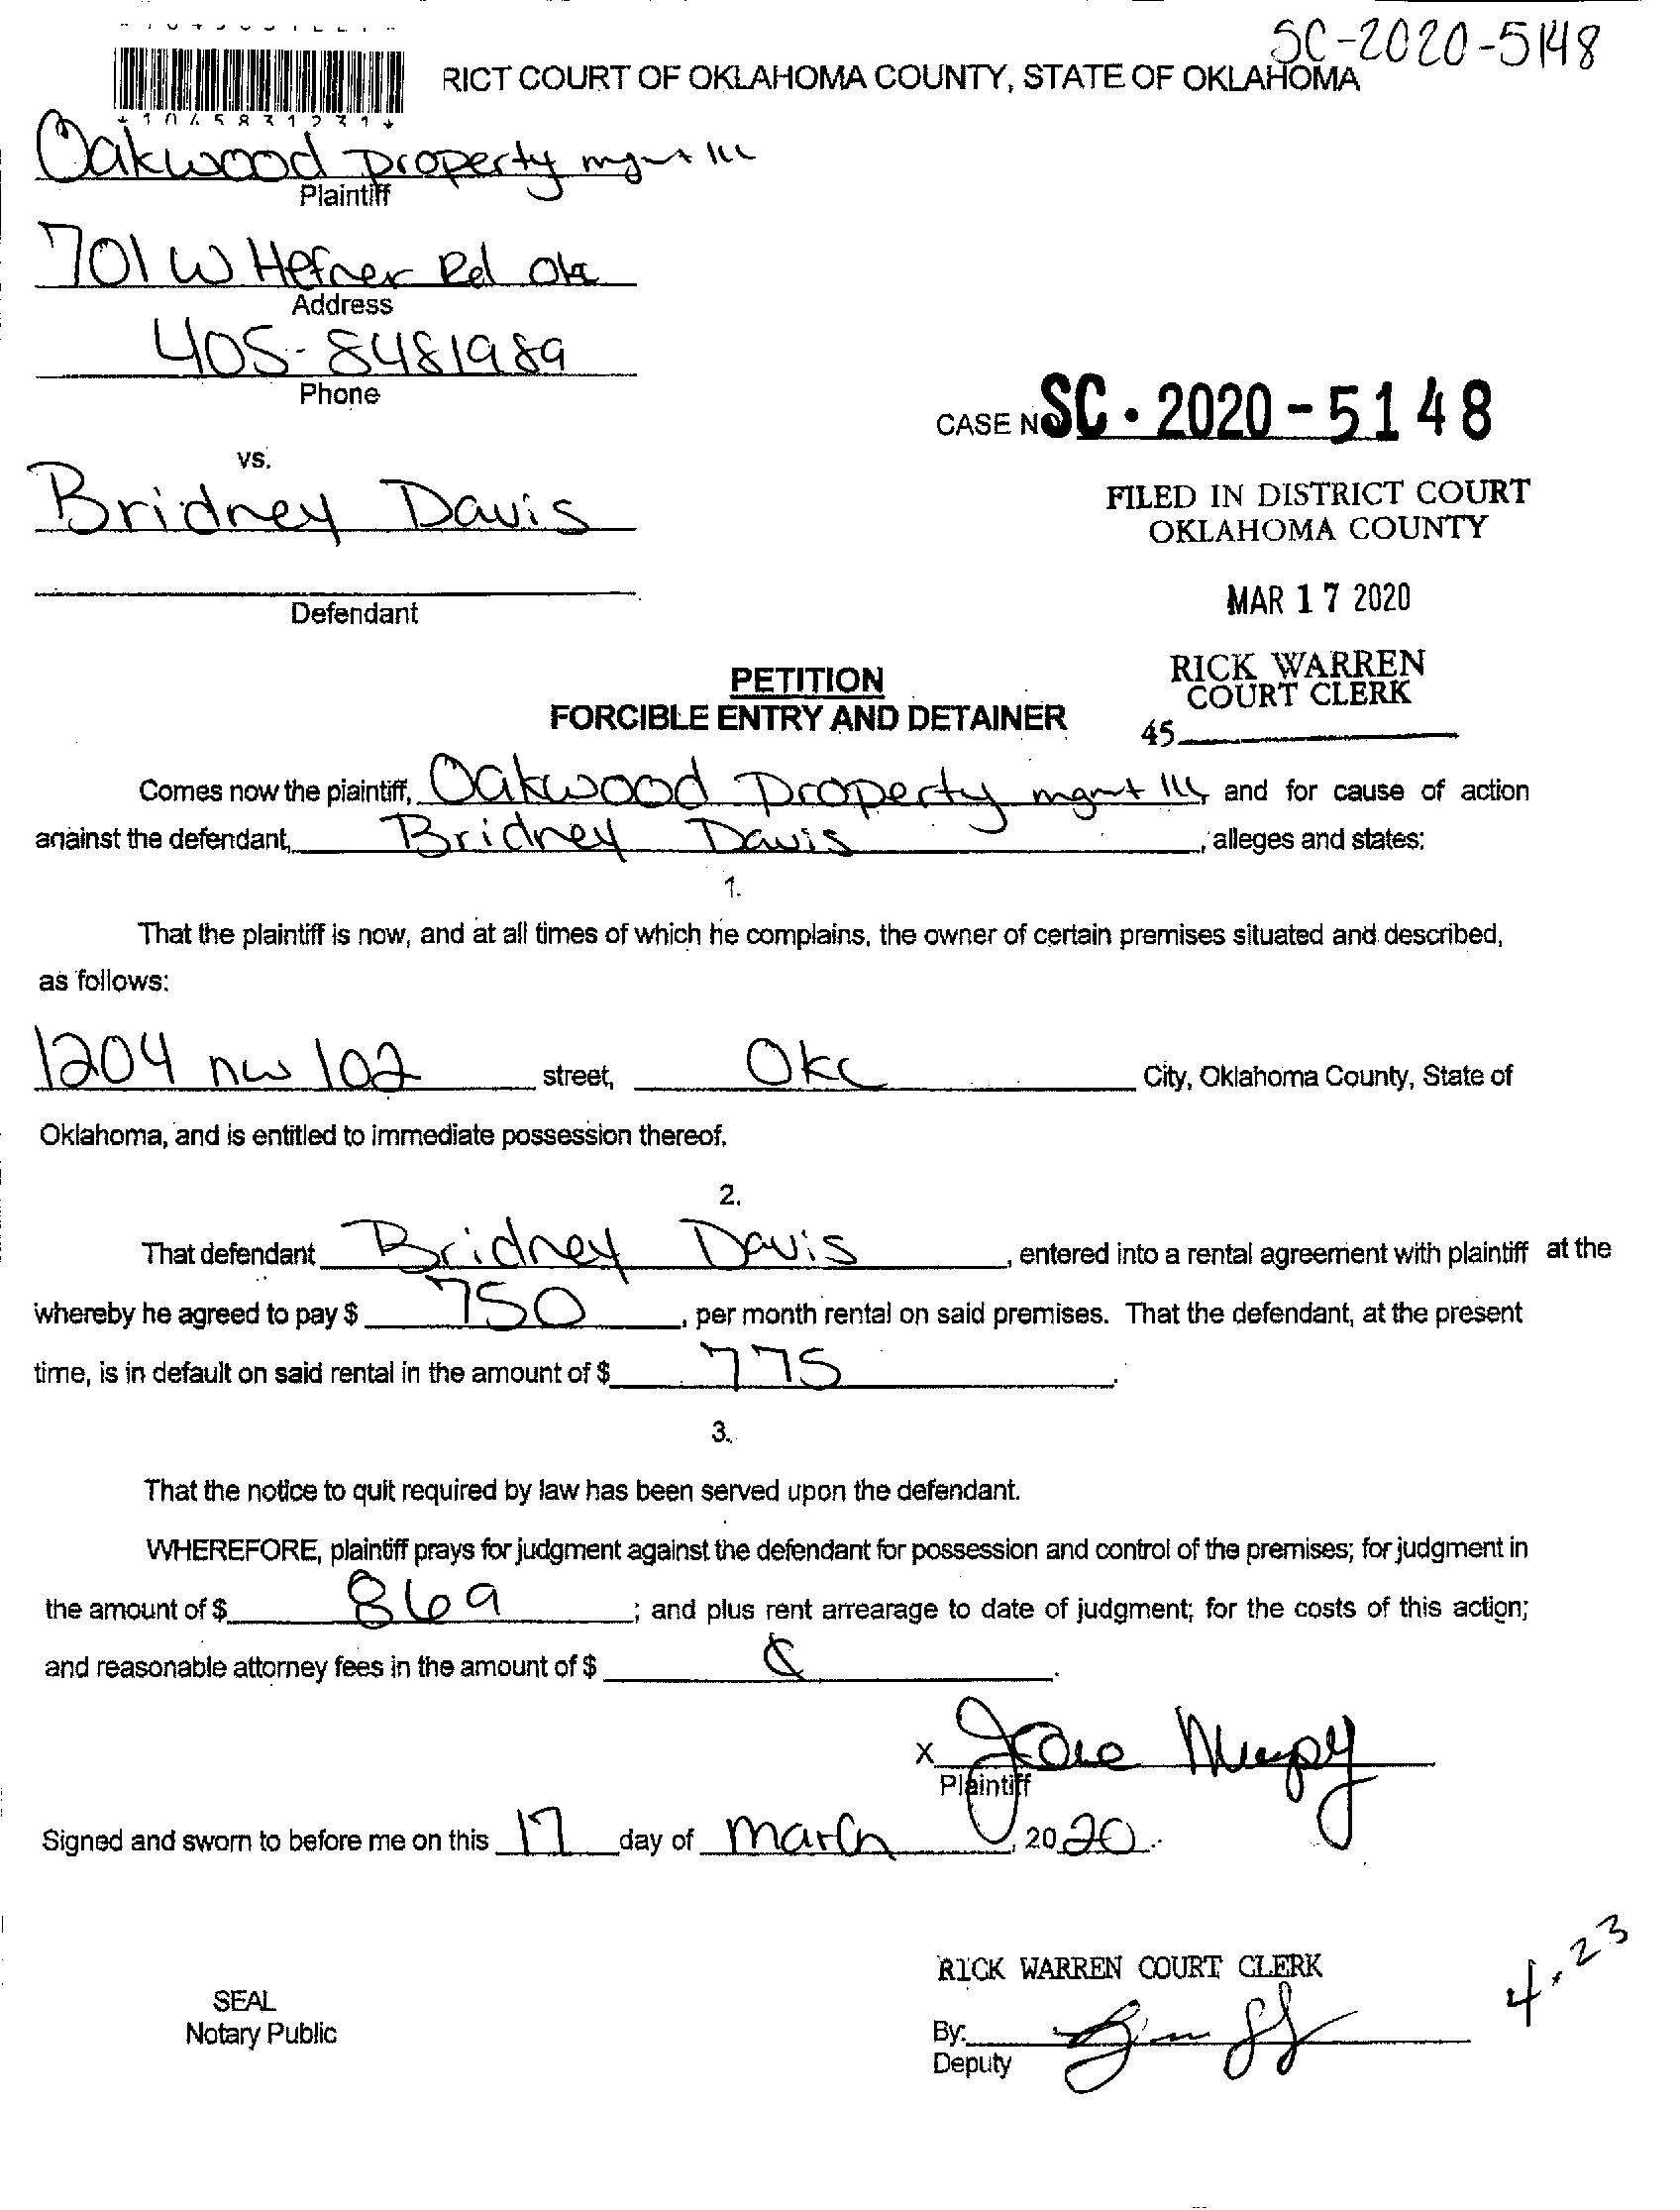 SC-2020-5148
RICT COURT OF OKLAHOMA COUNTY, STATE OF OKLAHOMA
*1045831231*
Oakwood property mgmt llc
Plaintiff
701 W Hefner Rd Okc
Address
405-8481989
Phone
CASE NO SC-2020-5148
vs.
Bridney Davis
FILED IN DISTRICT COURT
OKLAHOMA COUNTY
MAR 17 2020
Defendant
RICK WARREN
COURT CLERK
45
PETITION
FORCIBLE ENTRY AND DETAINER
Comes now the plaintiff, Oakwood property mgmt llc and for cause of action
against the defendant, Bridney Davis, alleges and states:
1.
That the plaintiff is now, and at all times of which he complains, the owner of certain premises situated and described,
as follows:
1204 nw 102 street, Okc City, Oklahoma County, State of
Oklahoma, and is entitled to immediate possession thereof.
2.
That defendant Bridney Davis, entered into a rental agreement with plaintiff at the
whereby he agreed to pay $ 750, per month rental on said premises. That the defendant, at the present
time, is in default on said rental in the amount of $ 775.
3.
That the notice to quit required by law has been served upon the defendant.
WHEREFORE, plaintiff prays for judgment against the defendant for possession and control of the premises; for judgment in
the amount of $ 869; and plus rent arrearage to date of judgment; for the costs of this action;
and reasonable attorney fees in the amount of $
X
Plaintiff
Signed and sworn to before me on this 17 day of March, 2020.
RICK WARREN COURT CLERK
4.23
SEAL
Notary Public
By:
Deputy